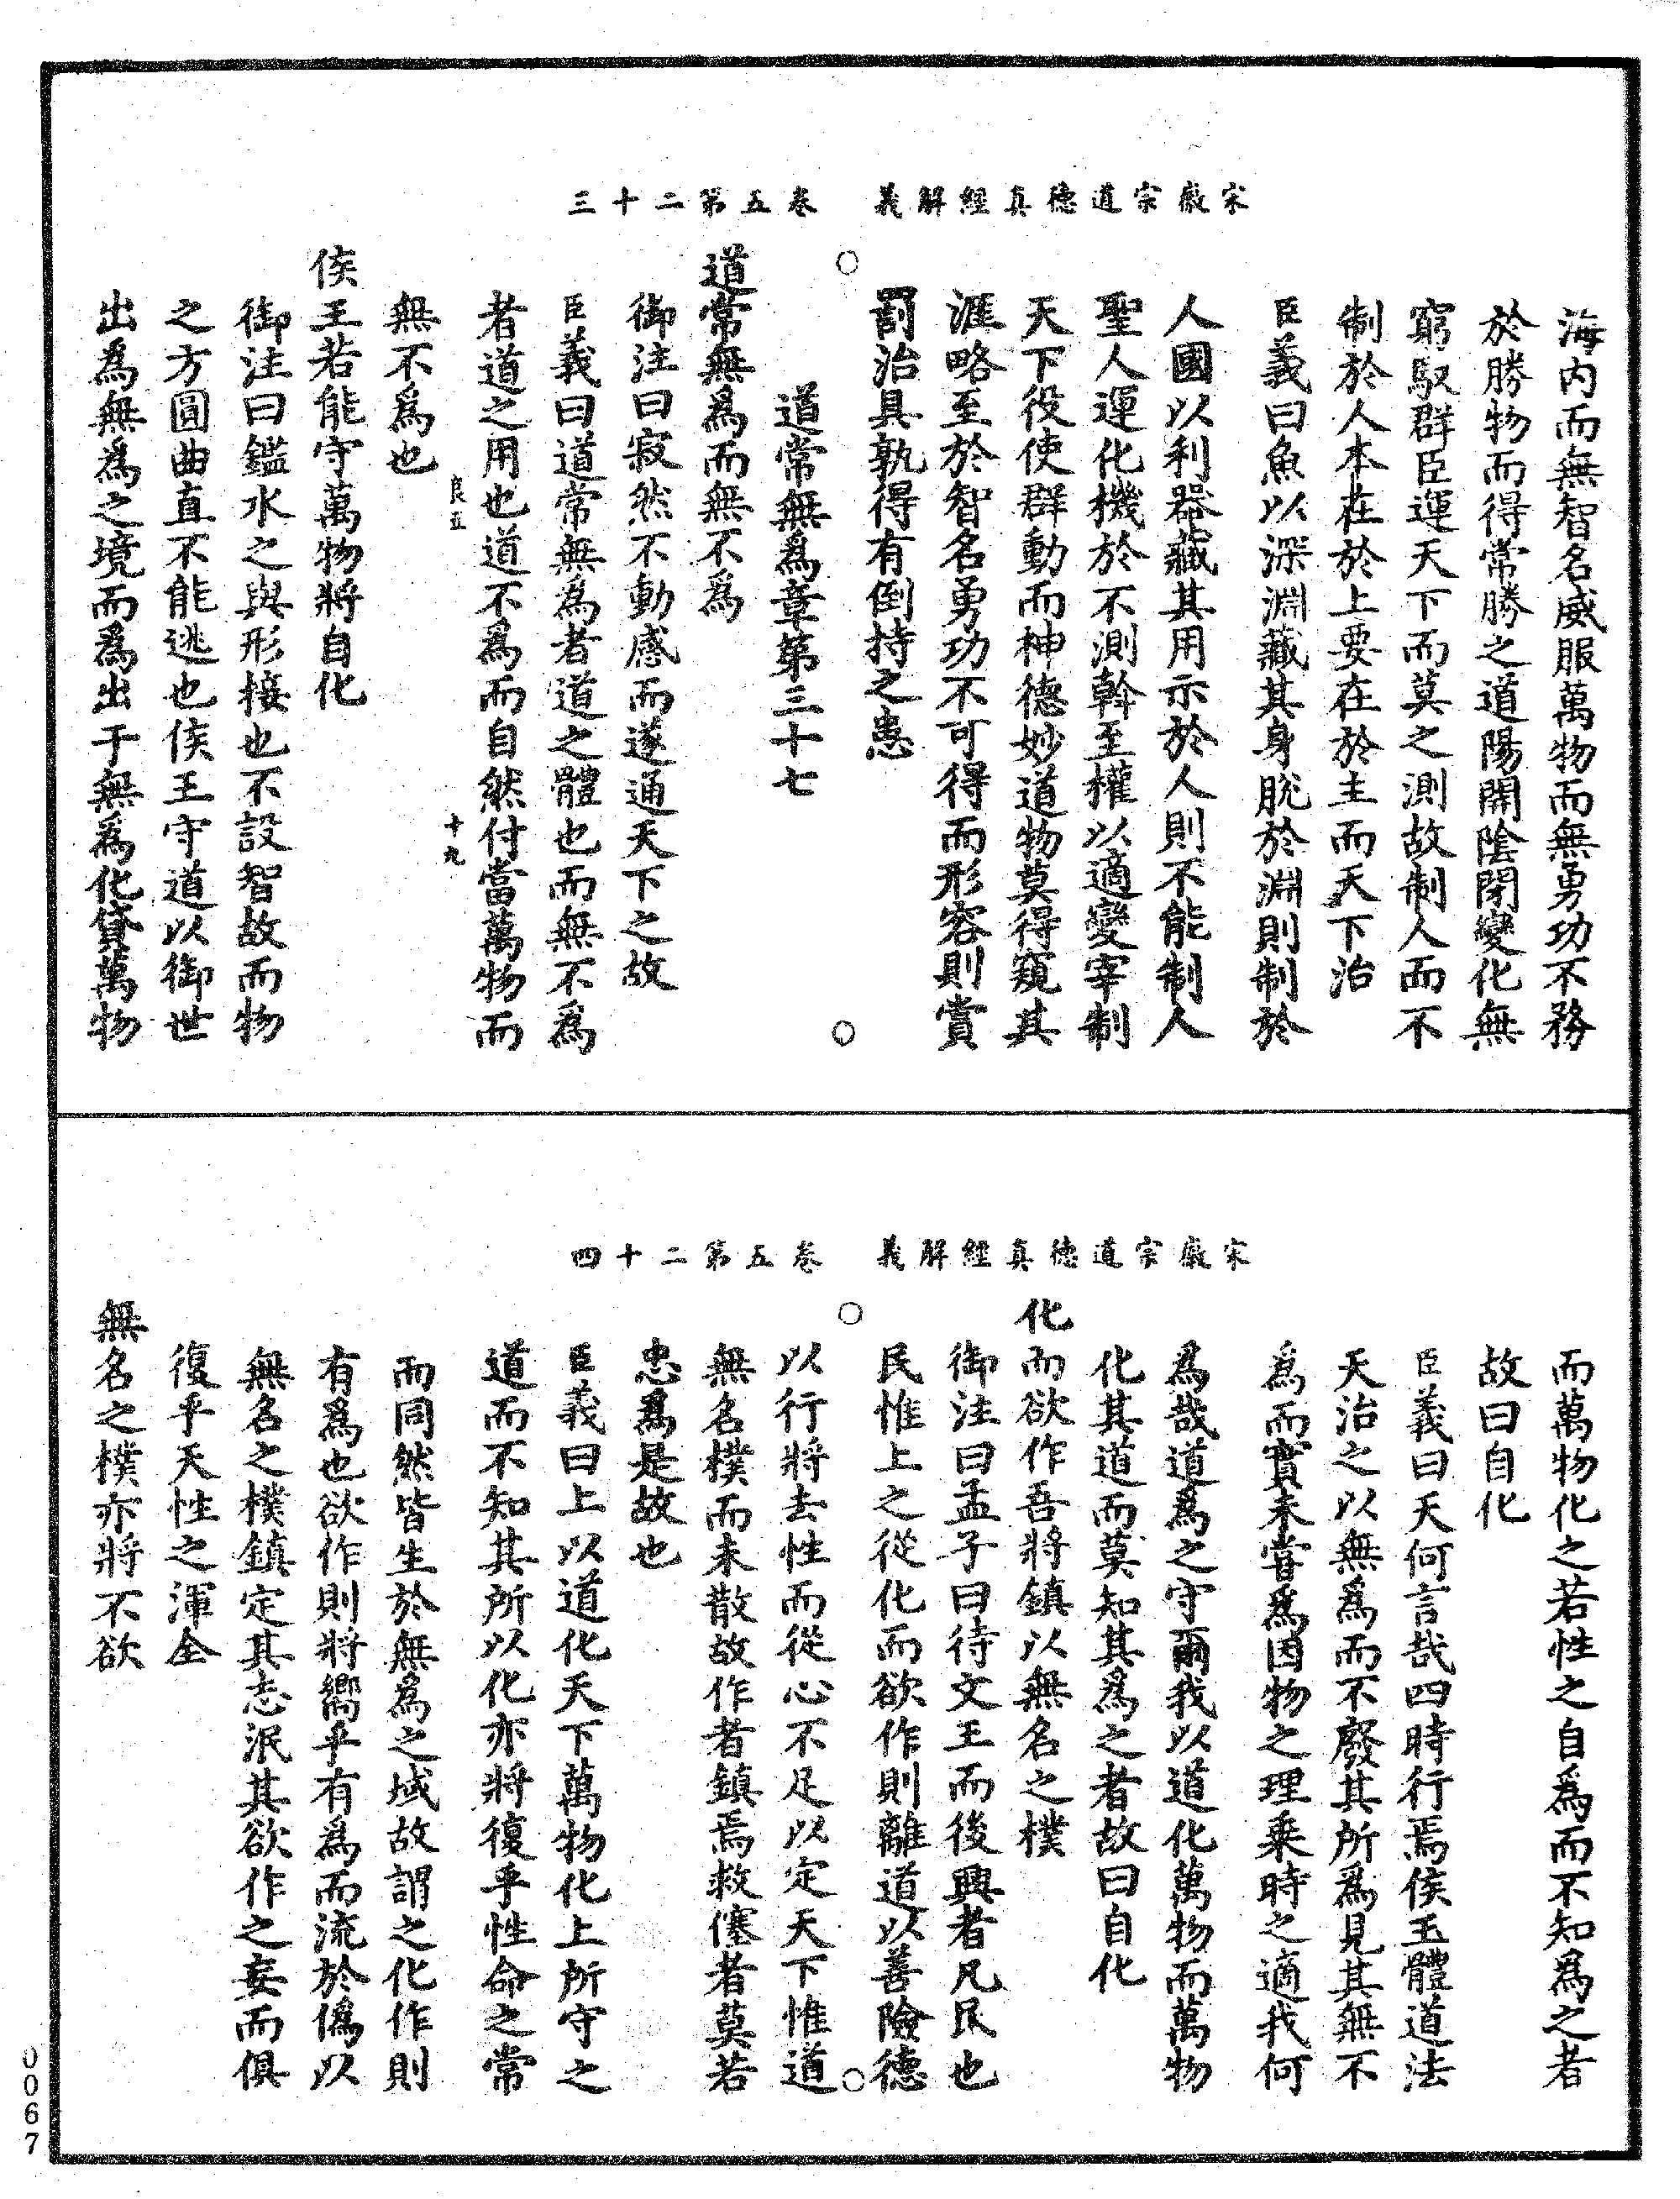 宋徽宗道德真經解義　卷五第二十三
海内而無智名威服萬物而無勇功不務
於勝物而得常勝之道陽開陰閉變化無
窮馭群臣運天下而莫之測故制人而不
制於人本在於上要在於主而天下治
臣義曰魚以深淵藏其身脫於淵則制於
人國以利器藏其用示於人則不能制人
聖人運化機於不測斡至權以適變宰制
天下役使群動而神德妙道物莫得窺其
涯略至於智名勇功不可得而形容則賞
罰治具孰得有倒持之患
道常無爲章第三十七
道常無爲而無不爲
御注曰寂然不動感而遂通天下之故
臣義曰道常無爲者道之體也而無不爲
者道之用也道不爲而自然付當萬物而
良五　十九
無不爲也
侯王若能守萬物將自化
御注曰鑑水之與形接也不設智故而物
之方圓曲直不能逃也侯王守道以御世
出爲無爲之境而爲出于無爲化貸萬物
宋徽宗道德真經解義　卷五第二十四
而萬物化之若性之自爲而不知爲之者
故曰自化
臣義曰天何言哉四時行焉侯王體道法
天治之以無爲而不廢其所爲見其無不
爲而實未嘗爲因物之理乘時之適我何
爲哉道爲之守爾我以道化萬物而萬物
化其道而莫知其爲之者故曰自化
化而欲作吾將鎮以無名之樸
御注曰孟子曰待文王而後興者凡民也
民惟上之從化而欲作則離道以善險德
以行將去性而從心不足以定天下惟道
無名樸而未散故作者鎮焉救僿者莫若
忠爲是故也
臣義曰上以道化天下萬物化上所守之
道而不知其所以化亦將復乎性命之常
而同然皆生於無爲之域故謂之化作則
有爲也欲作則將嚮乎有爲而流於僞以
無名之樸鎮定其志泯其欲作之妄而俱
復乎天性之渾全
無名之樸亦將不欲
0067